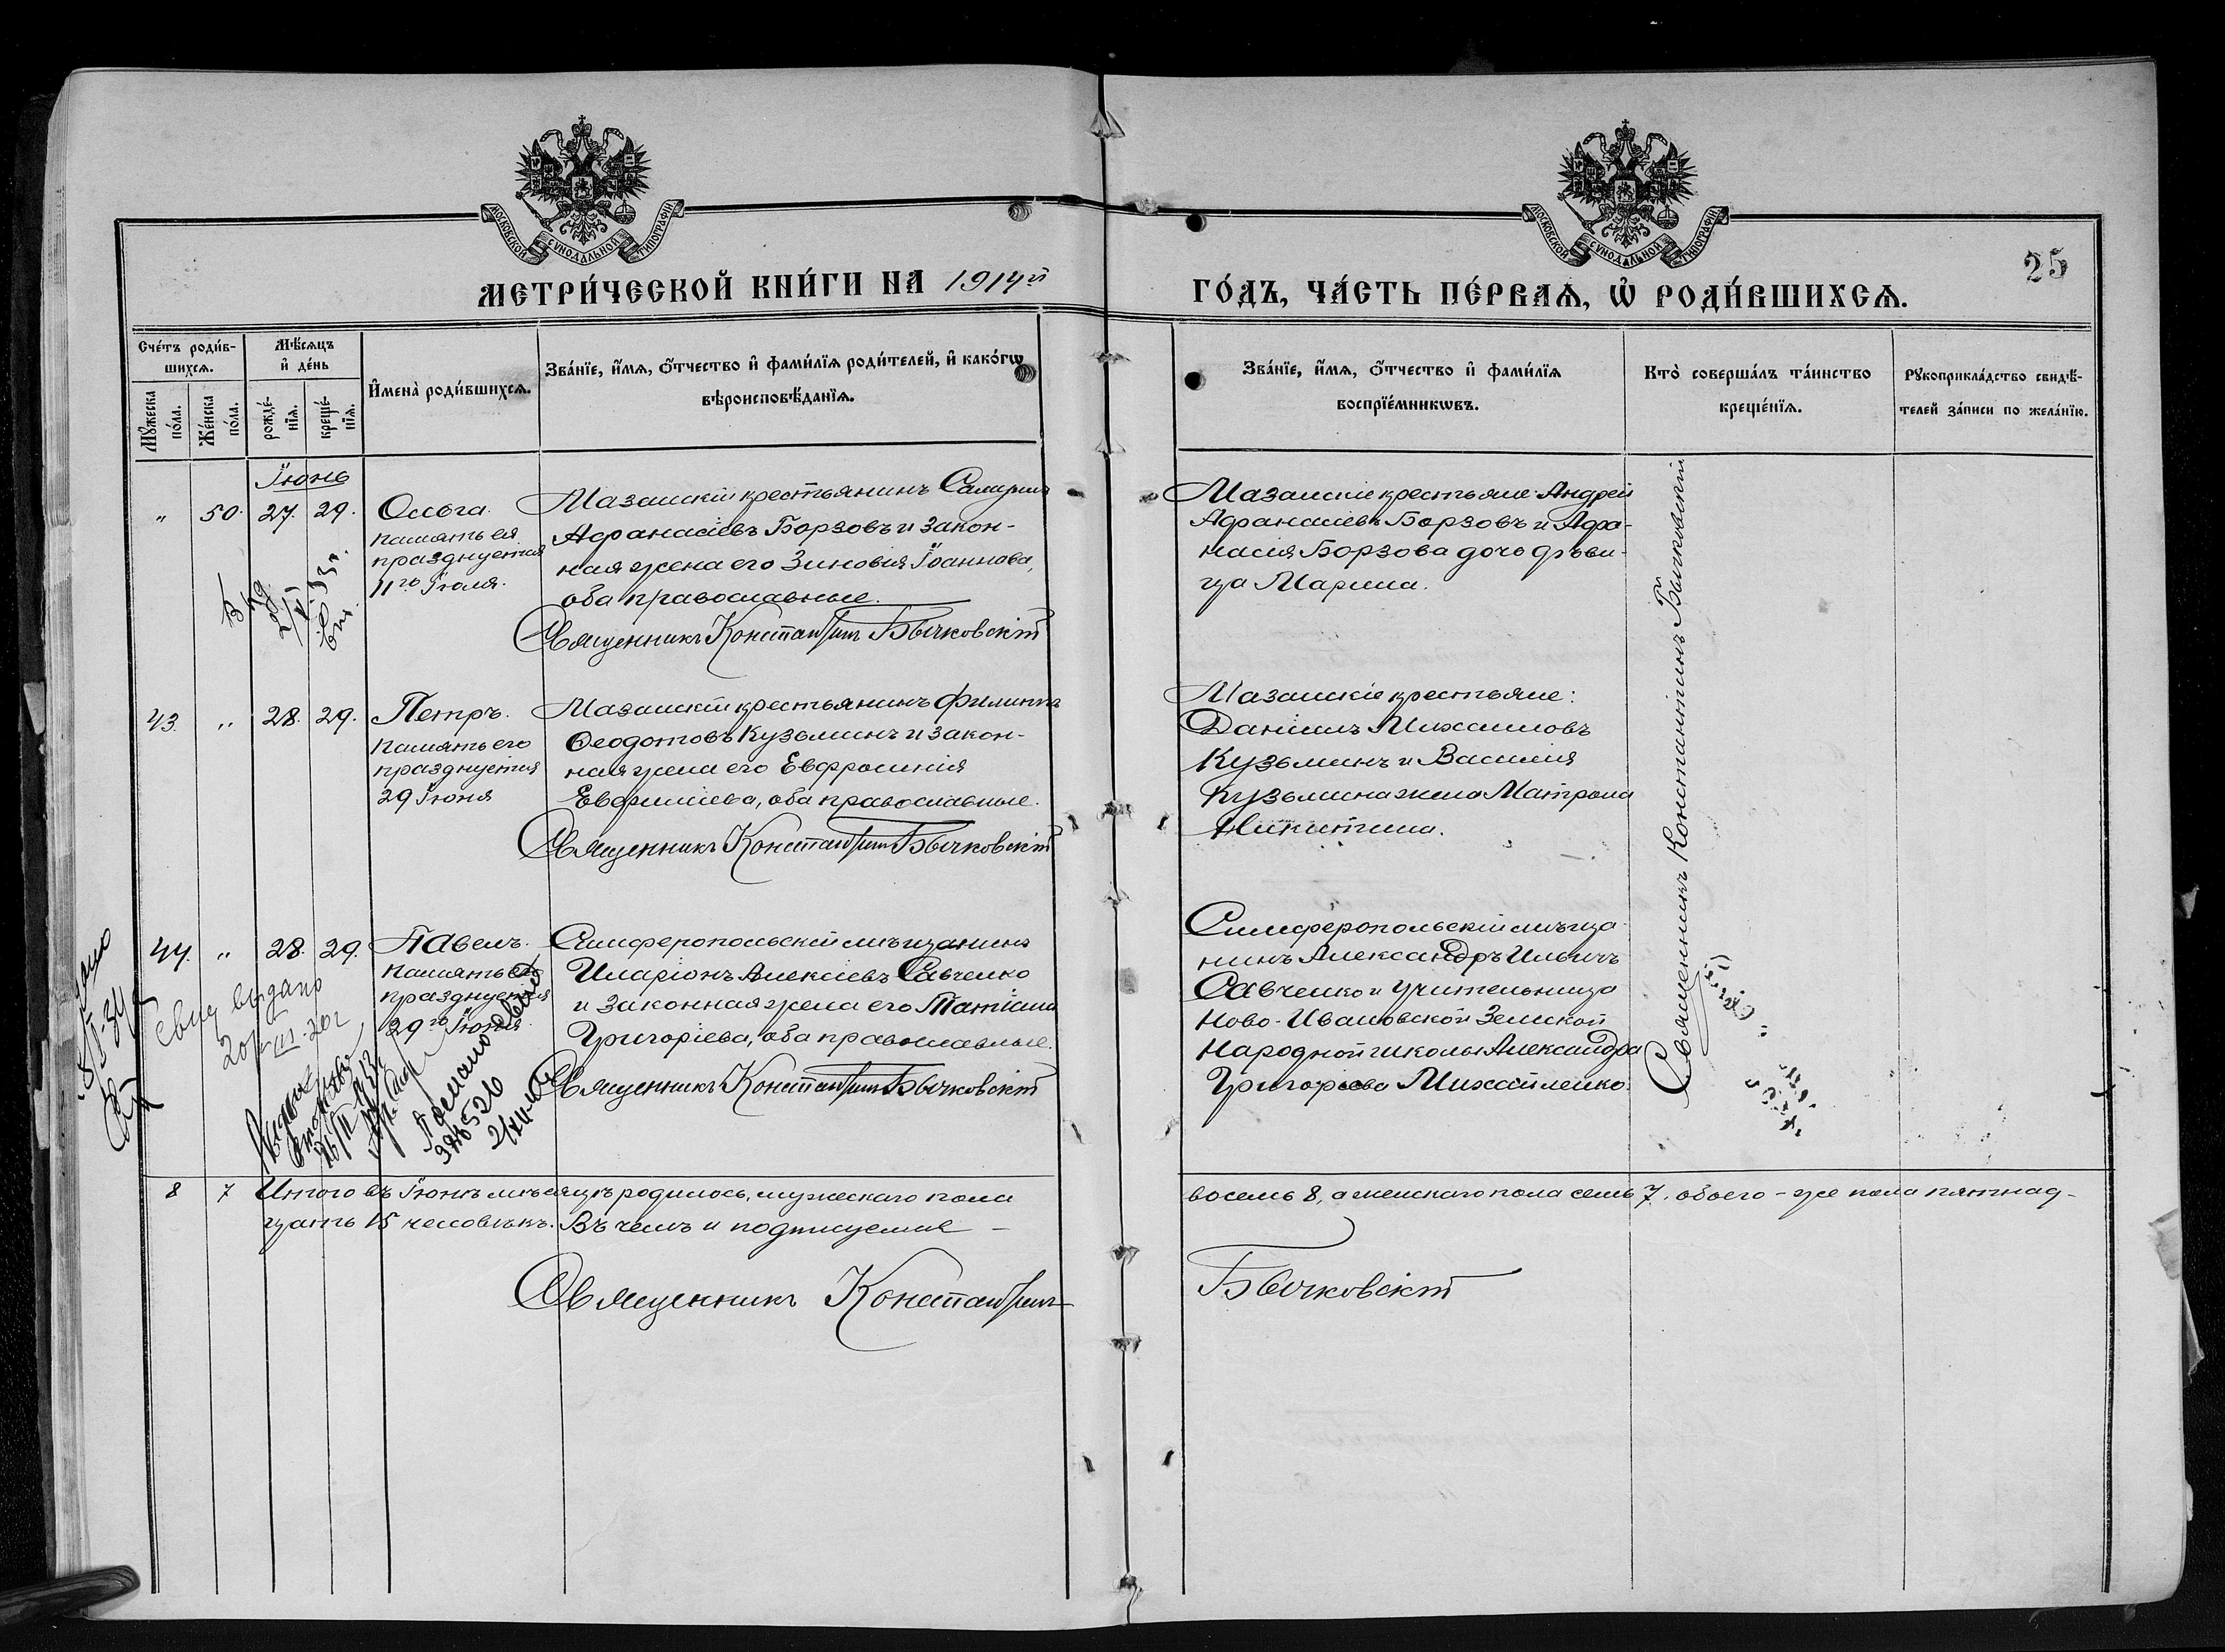 МОСКОВСКОЙ СѴНОДАЛЬНОЙ ТИПОГРАФІИ
МОСКОВСКОЙ СѴНОДАЛЬНОЙ ТИПОГРАФІИ
25
МЕТРИ́ЧЕСКОЙ КНИ́ГИ НА 1914й
ГО́ДЪ, ЧА́СТЬ ПЕ́РВАѦ, Ѡ҆ РОДИ́ВШИХСѦ.
Сче́тъ роди́в-
шихсѧ.
Мꙋ́жеска
по́ла.
Же́нска
по́ла.
Мѣ́сѧцъ
и҆ де́нь
рожде́-
нїѧ.
креще́-
нїѧ.
И҆мена̀ роди́вшихсѧ.
Зва́нїе, и҆́мѧ, ѻ҆́тчество и҆ фами́лїѧ роди́телей, и҆ како́гѡ
вѣроисповѣ́данїѧ.
Зва́нїе, и҆́мѧ, ѻ҆́тчество и҆ фами́лїѧ
воспрїе́мникѡвъ.
Кто̀ соверша́лъ та́инство
креще́нїѧ.
Рꙋкоприкла́дство свидѣ́-
телей за́писи по жела́нїю.
Іюнь
" 50. 27. 29.
Ольга.
память ея
празднуется
11го Іюля.
Мазанскій крестьянинъ
Афанасіевъ Борзовъ и закон-
ная жена его Зиновія Іоаннова,
оба православные.
Священникъ Константинъ Бычковскій
Мазанскіе крестьяне Андрей
Афанасіевъ Борзовъ и Афа-
насія Борзова дочь дѣви-
ца Марина.
Священникъ Константинъ Бычковскій
43. " 28. 29.
Петръ.
память его
празднуется
29 Іюня
Мазанскій крестьянинъ Филиппъ
Ѳеодотовъ Кузьминъ и закон-
ная жена его Евфросинія
Евфиміева, оба православные.
Священникъ Константинъ Бычковскій
Мазанскіе крестьяне:
Даніилъ Михаиловъ
Кузьминъ и Василія
Кузьмина жена Матрона
Никитина.
44. " 28. 29.
Павелъ.
память его
празднуется
29го Іюня.
Симферопольскій мѣщанинъ
Иларіонъ Алексіевъ Савченко
и законная жена его Татіана
Григоріева, оба православные.
Священникъ Константинъ Бычковскій
Симферопольскій мѣща-
нинъ Александръ Ильичъ
Савченко и учительница
Ново-Ивановской Земской
Народной школы Александра
Григоріева Михайленко.
выдано
8 7 Итого въ Іюнѣ мѣсяцѣ родилось, мужескаго пола
восемь 8, а женскаго пола семь 7, обоего-же пола пятнад-
цать 15 человѣкъ. Въ чемъ и подписуемся —
Священникъ Константинъ
Бычковскій